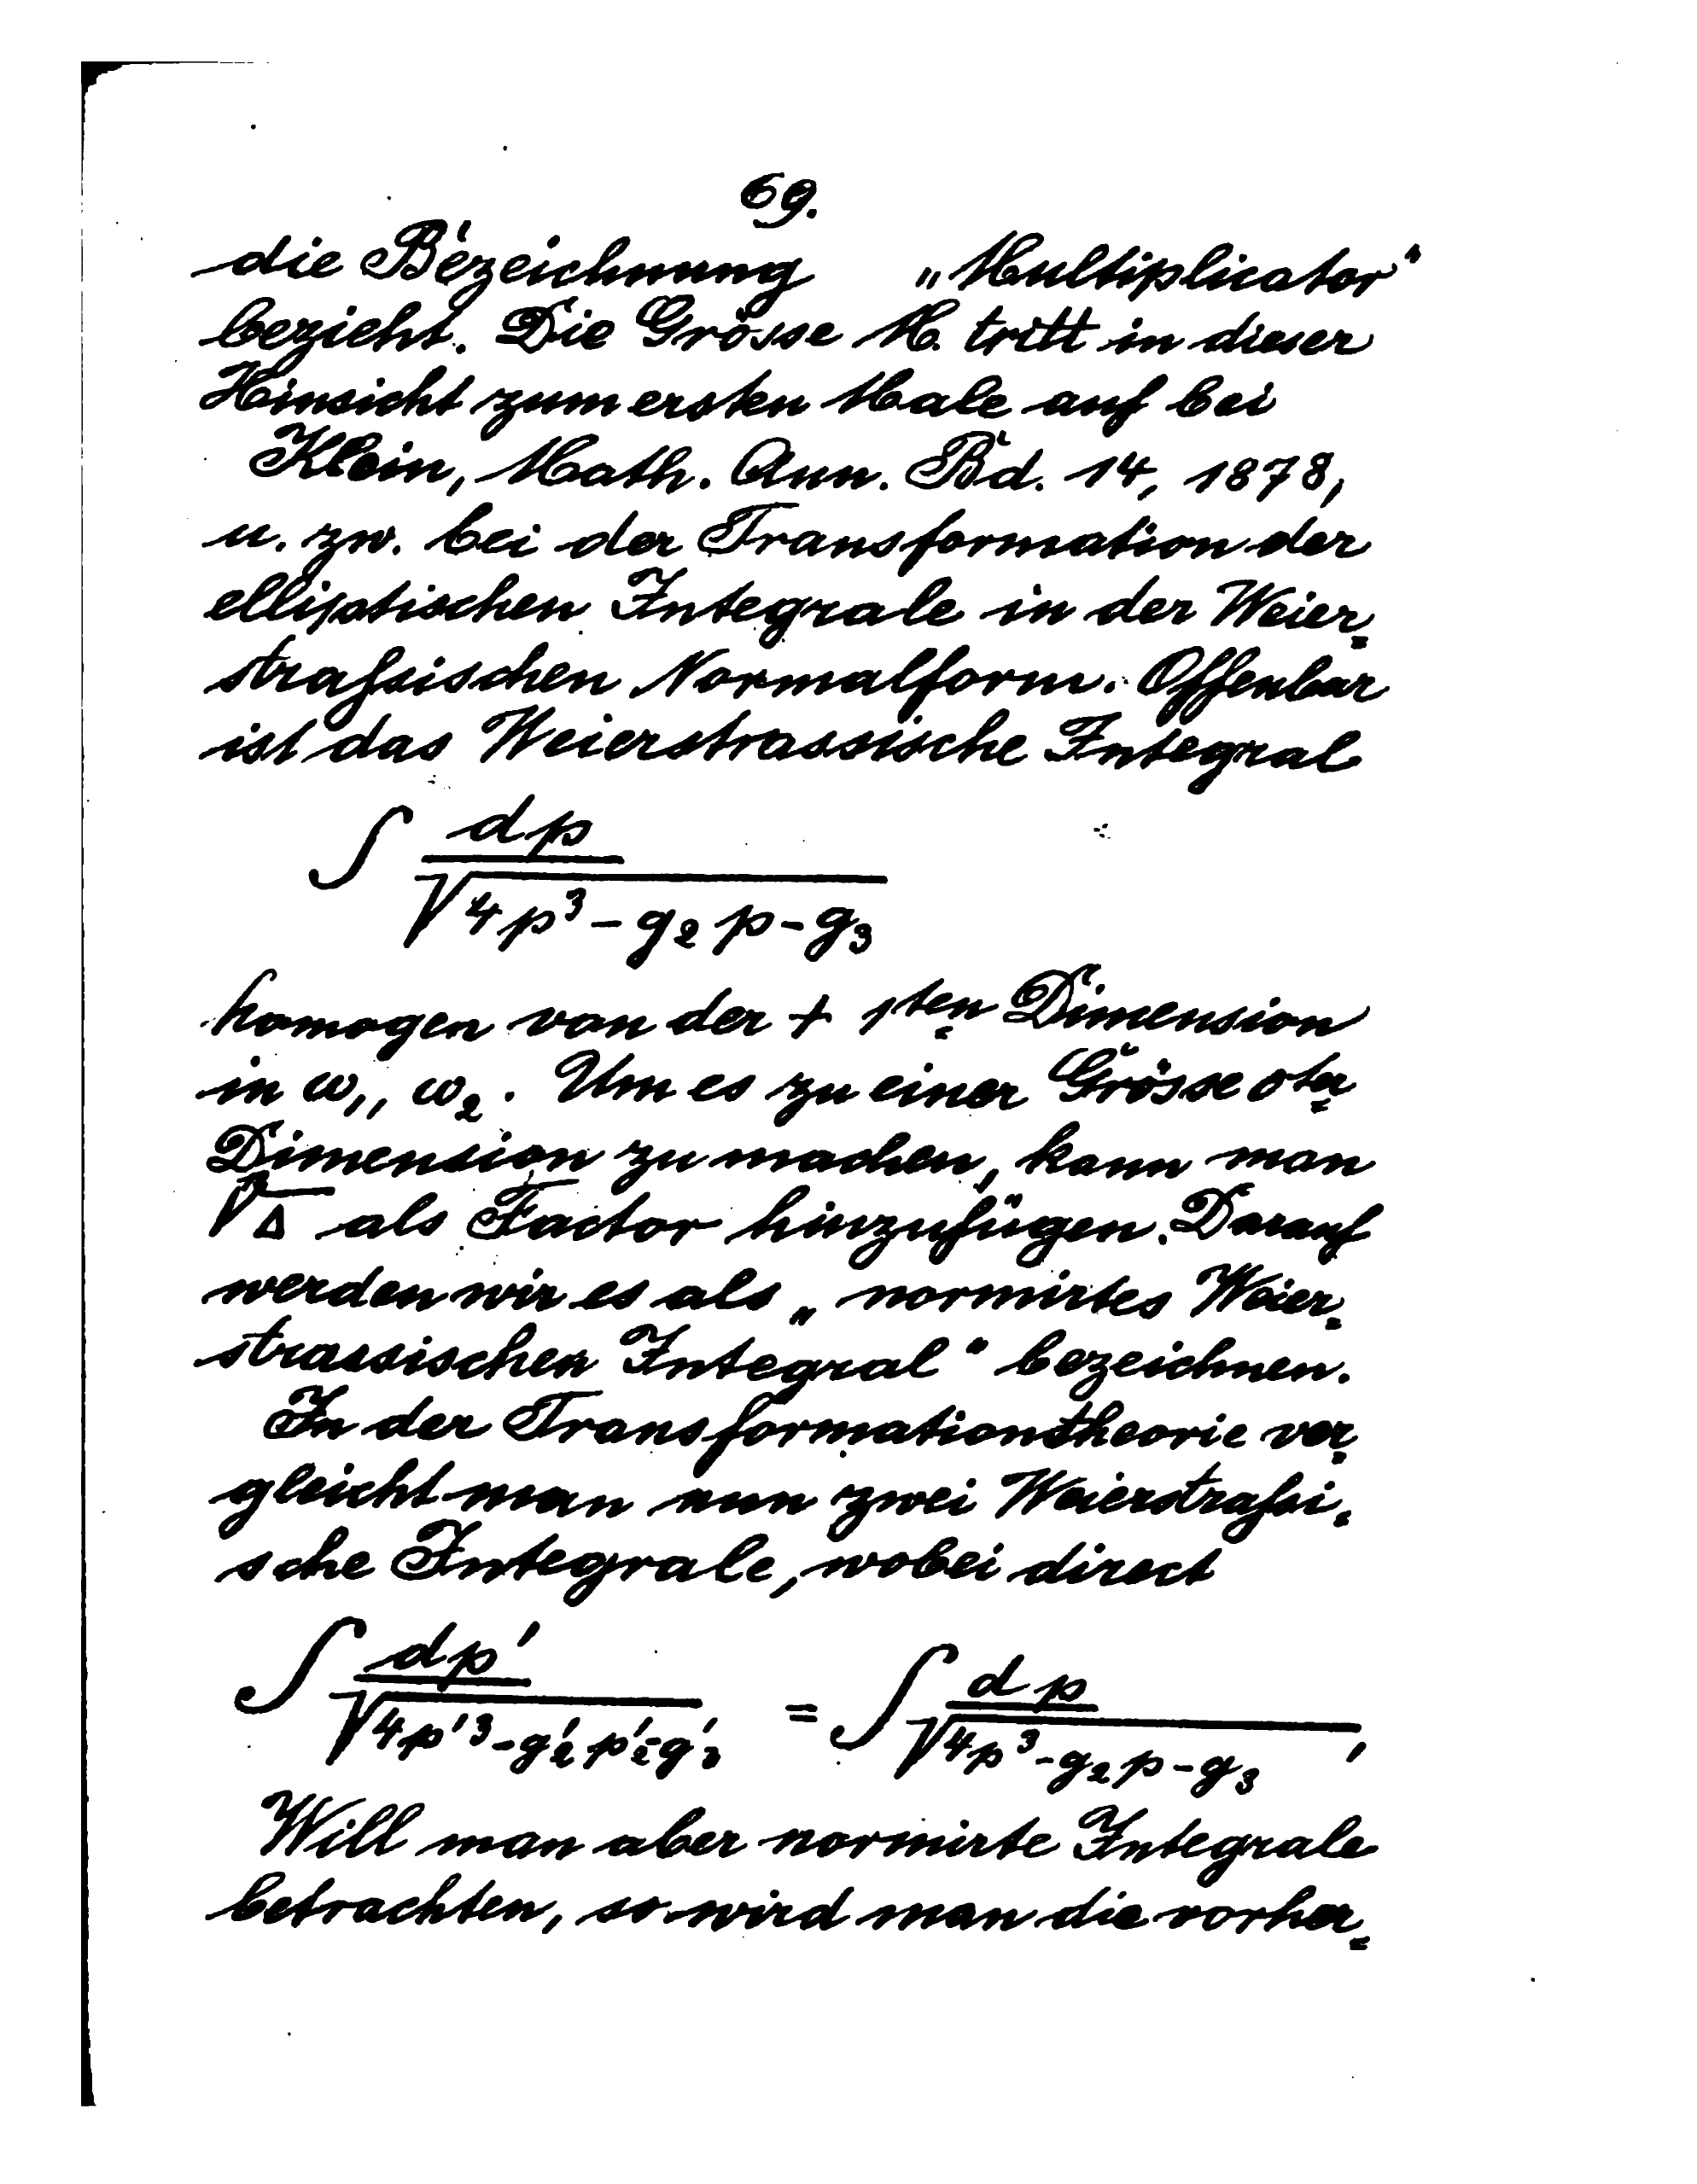 69.
die Bezeichnung „Multiplicator“
bezieht. Die Grösse M. tritt in dieser
Hinsicht zum ersten Male auf bei
Klein, Math. Ann. Bd. 14, 1878,
u. zw. bei der Transformation der
elliptischen Integrale in der Weier=
straßsischen Normalform. Offenbar
ist das Weierstrassische Integral
∫ dp / √(4p³ - g₂ p - g₃)
homogen von der + 1ten Dimension
in ω₁, ω₂. Um es zu einer Grösse 0ter
Dimension zu machen, kann man
¹²√Δ als Factor hinzufügen. Darauf
werden wir es als „normirtes Weier=
strassischen Integral“ bezeichnen.
In der Transformationstheorie ver=
gleicht man nun zwei Weierstraßi=
sche Integrale, wobei direct
∫ dp′ / √(4p′³ - g₂′ p′ - g₃′) = ∫ dp / √(4p³ - g₂ p - g₃),
Will man aber normirte Integrale
betrachten, so wird man die vorher=